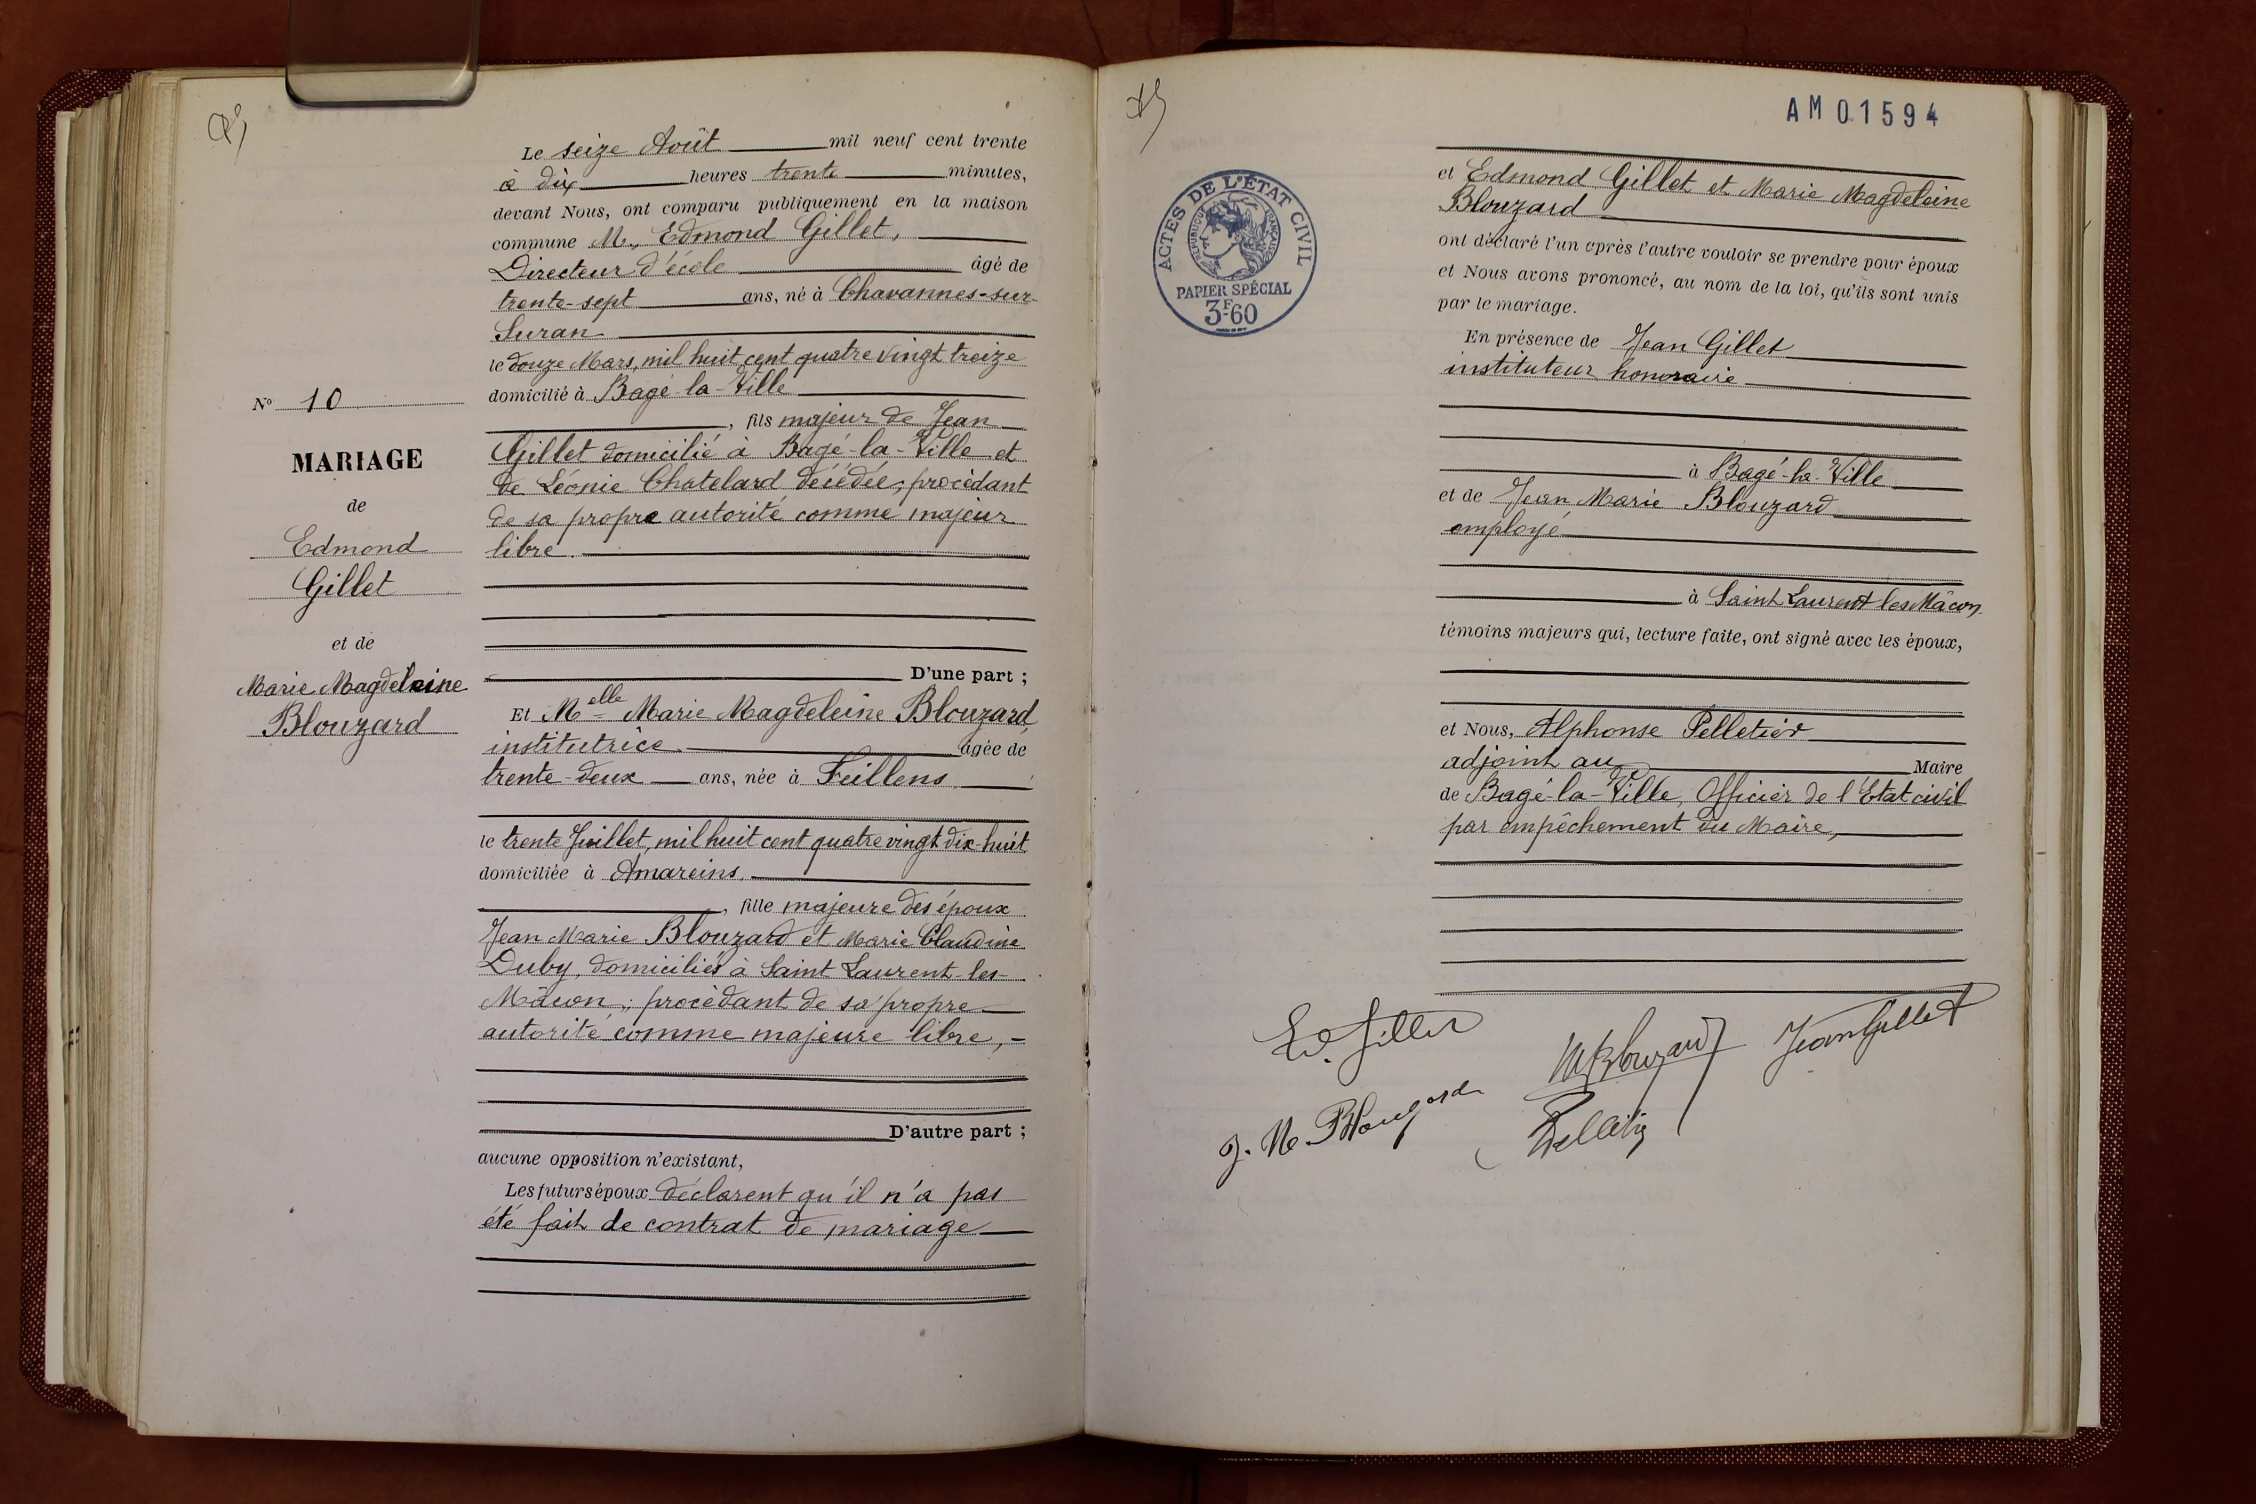 Le seize Août mil neuf cent trente
à dix heures trente minutes,
devant Nous, ont comparu publiquement en la maison
commune M., Edmond Gillet,
Directeur d'école âgé de
trente-sept ans, né à Chavannes-sur-
Suran
le douze Mars, mil huit cent quatre vingt treize
domicilié à Bagé-la-Ville
, fils majeur de Jean
Gillet domicilié à Bagé-la-Ville et
de Léonie Chatelard décédée, procédant
de sa propre autorité comme majeur
libre.
D'une part ;
Nº 10
MARIAGE
de
Edmond
Gillet
et de
Marie Magdeleine
Blouzard
Et Melle Marie Magdeleine Blouzard,
institutrice âgée de
trente-deux ans, née à Feillens
le trente Juillet, mil huit cent quatre vingt dix-huit
domiciliée à Amareins.
, fille majeure des époux
Jean Marie Blouzard et Marie Claudine
Duby, domiciliés à Saint Laurent-les-
Mâcon, procédant de sa propre
autorité comme majeure libre,
D'autre part ;
aucune opposition n'existant,
Les futurs époux déclarent qu'il n'a pas
été fait de contrat de mariage
AM01594
ACTES DE L'ÉTAT CIVIL
RÉPUBLIQUE FRANÇAISE
PAPIER SPÉCIAL
3F60
et Edmond Gillet et Marie Magdeleine
Blouzard
ont déclaré l'un après l'autre vouloir se prendre pour époux
et Nous avons prononcé, au nom de la loi, qu'ils sont unis
par le mariage.
En présence de Jean Gillet
instituteur honoraire
à Bagé-la-Ville
et de Jean Marie Blouzard
employé
à Saint Laurent les Mâcon
témoins majeurs qui, lecture faite, ont signé avec les époux,
et Nous, Alphonse Pelletier
adjoint au Maire
de Bagé-la-Ville, Officier de l'Etat civil
par empêchement du Maire,
Ed. Gillet
M Blouzard
Jean Gillet
J. M. Blouzard
Pelletier